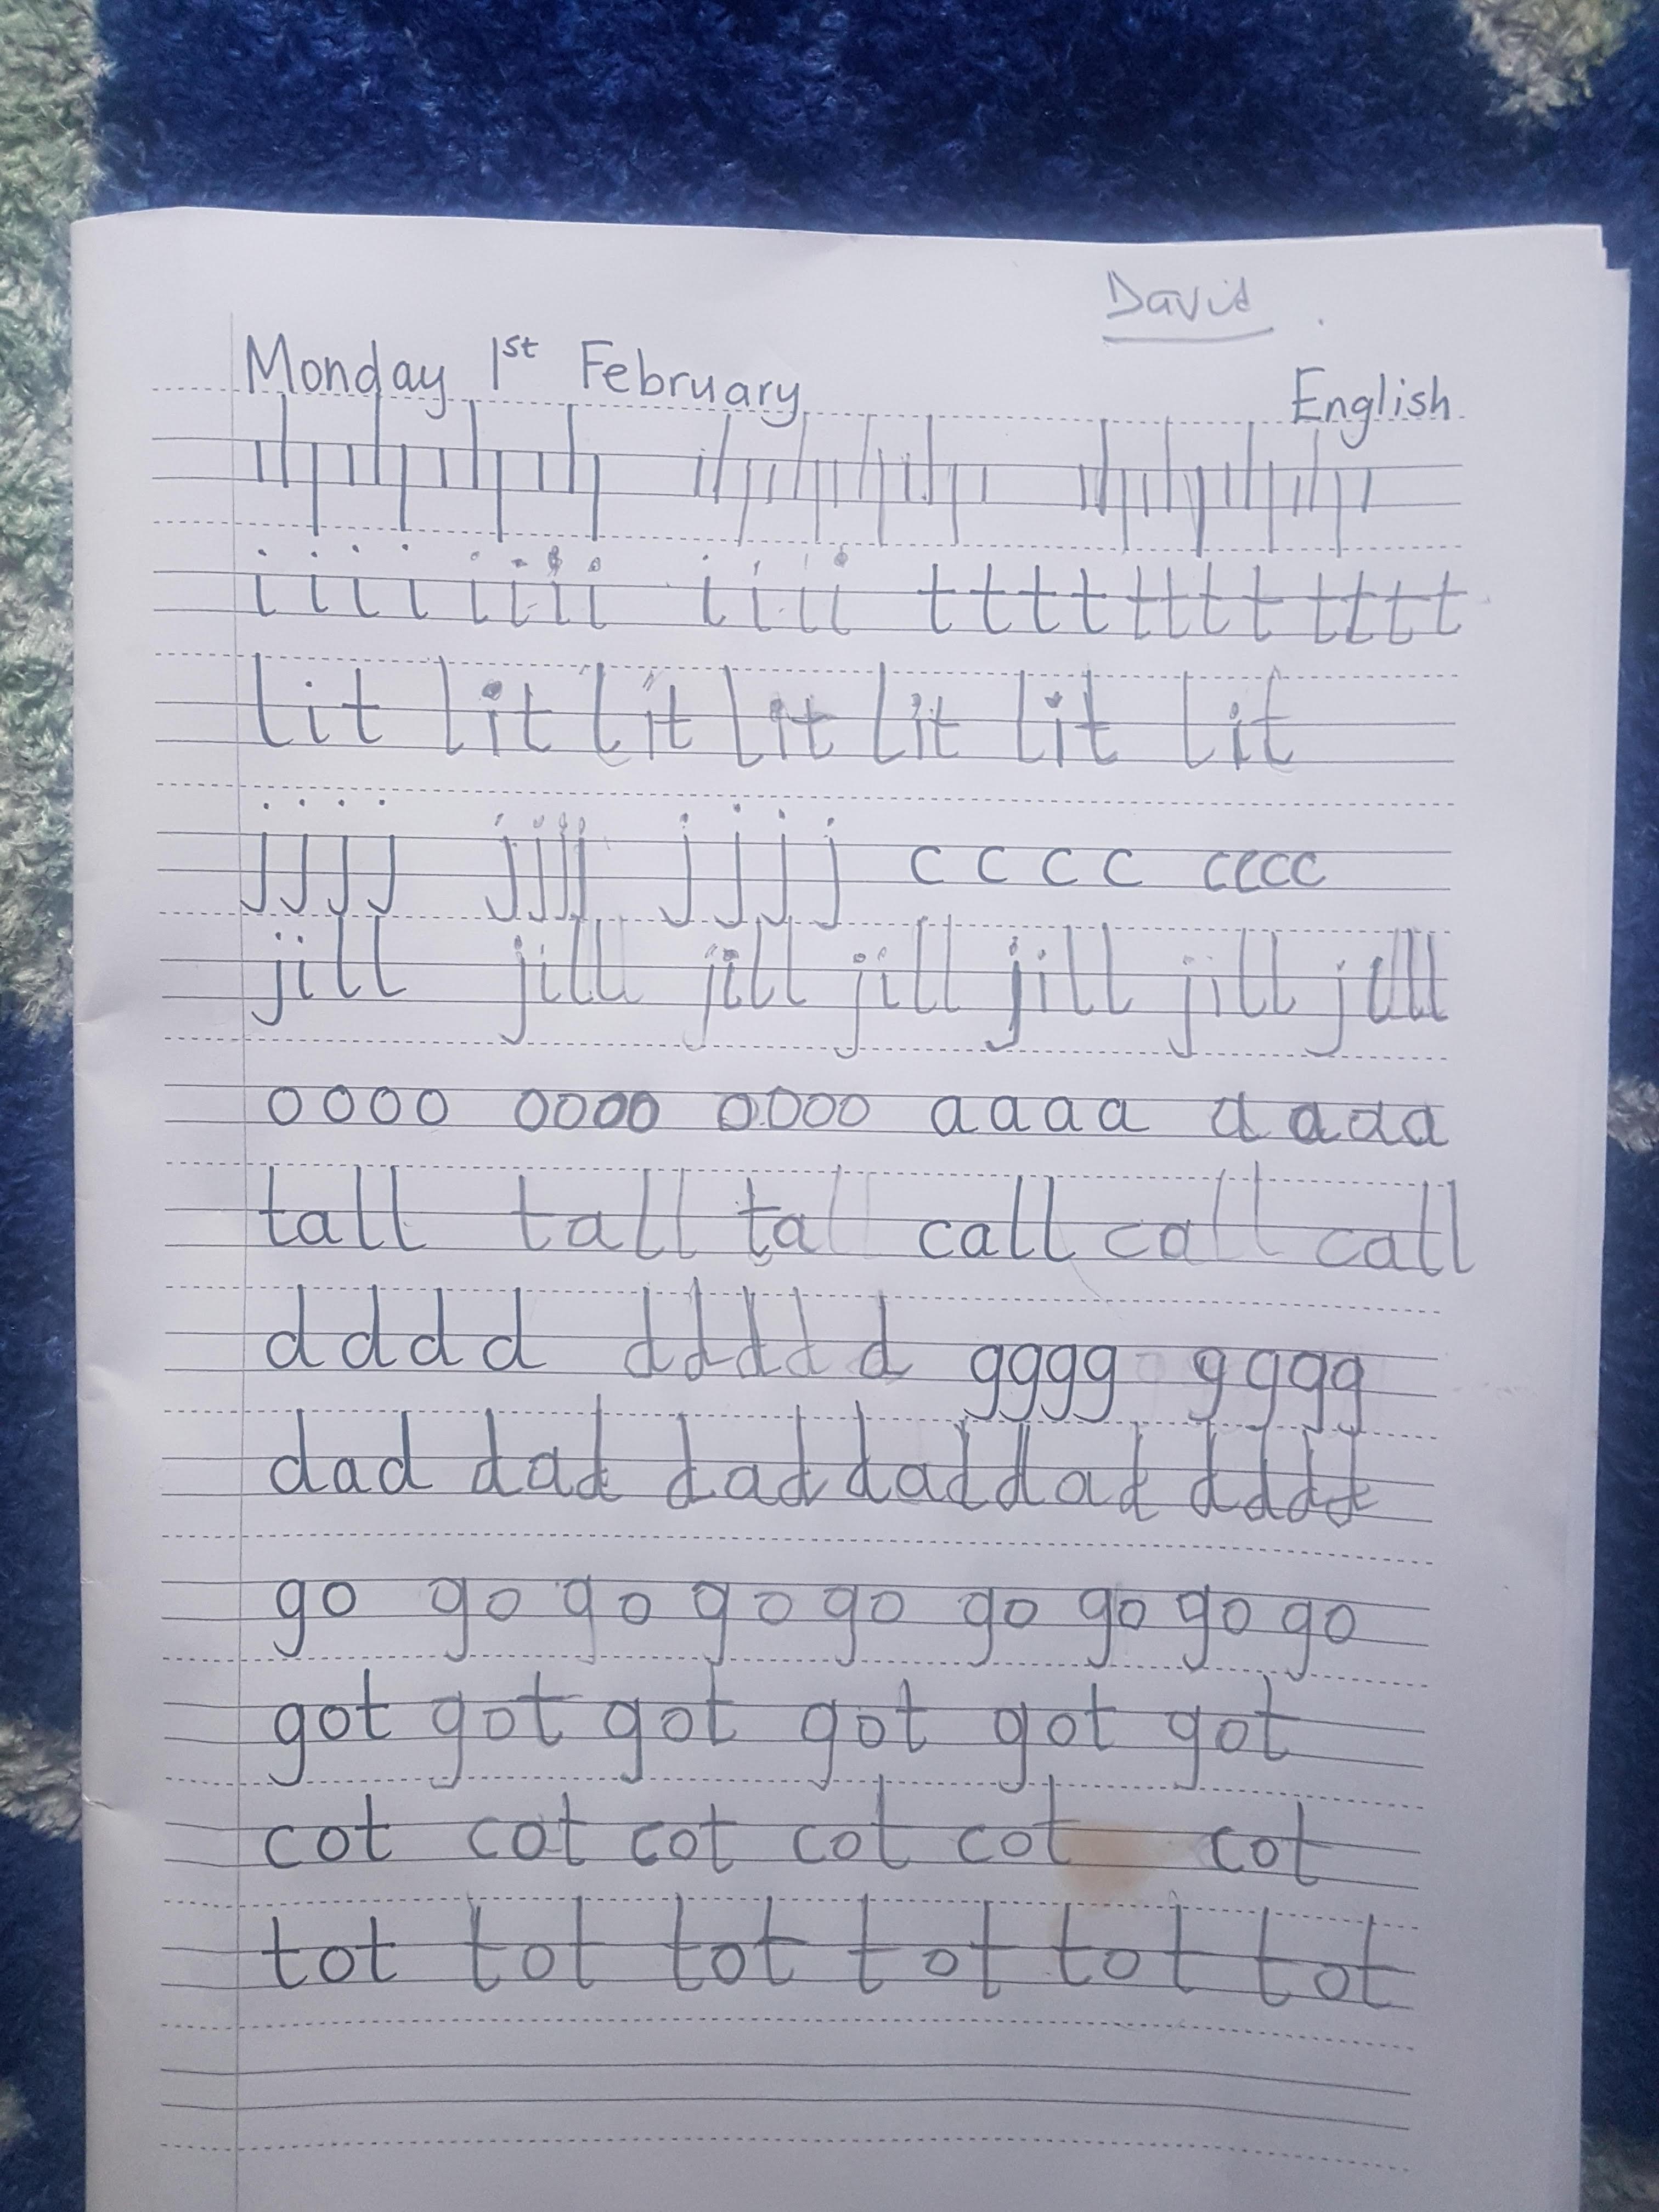 David
Monday 1st February English
i i i i i i i i i i i i t t t t t t t t t t t t
lit lit lit lit lit lit lit
j j j j j j j j j j j j c c c c c c c c
jill jill jill jill jill jill jill
o o o o o o o o o o o o a a a a a a a a
tall tall tall call call call
d d d d d d d d d g g g g g g g g
dad dad dad dad dad d d d d
go go go go go go go go go
got got got got got got
cot cot cot cot cot cot
tot tot tot tot tot tot